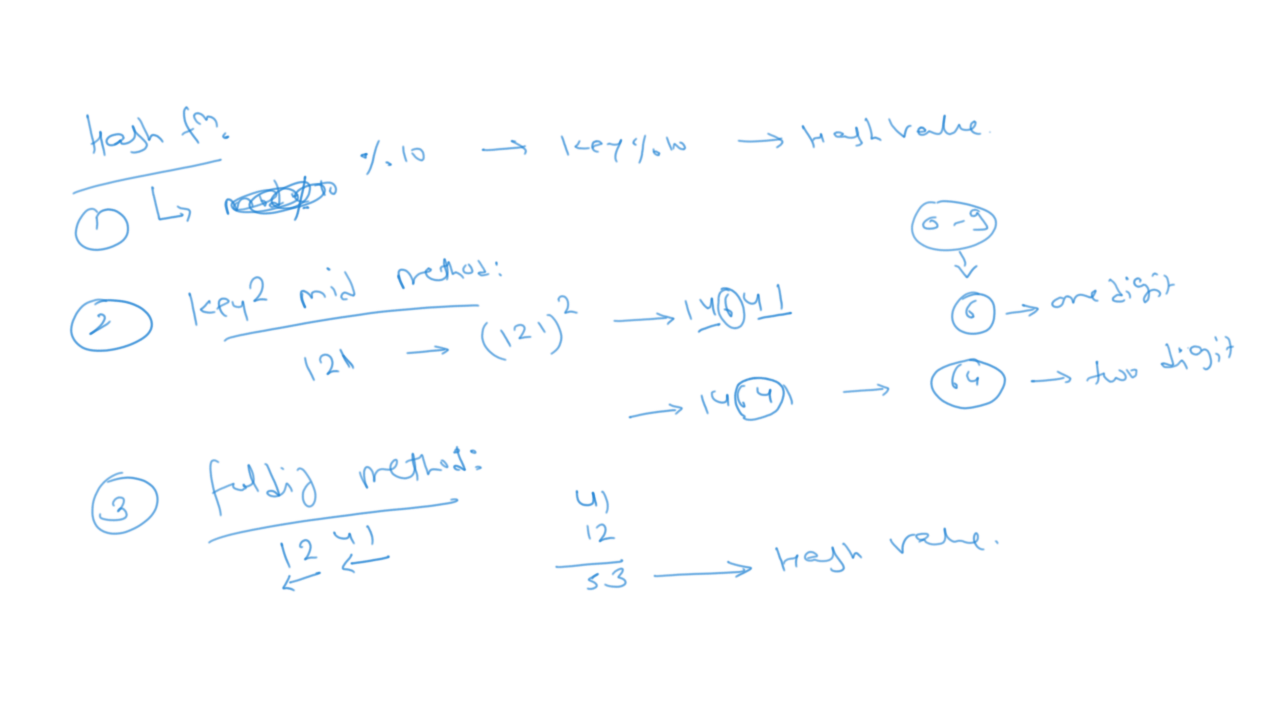 Hash fn.
% 10 → key % 10 → Hash Value.
①
② key² mid method:
0-9
121 → (121)² → 14641
6 → one digit
→ 14641 → 64 → two digit
③ foldig method:
12 41
41
12
53 → Hash value.